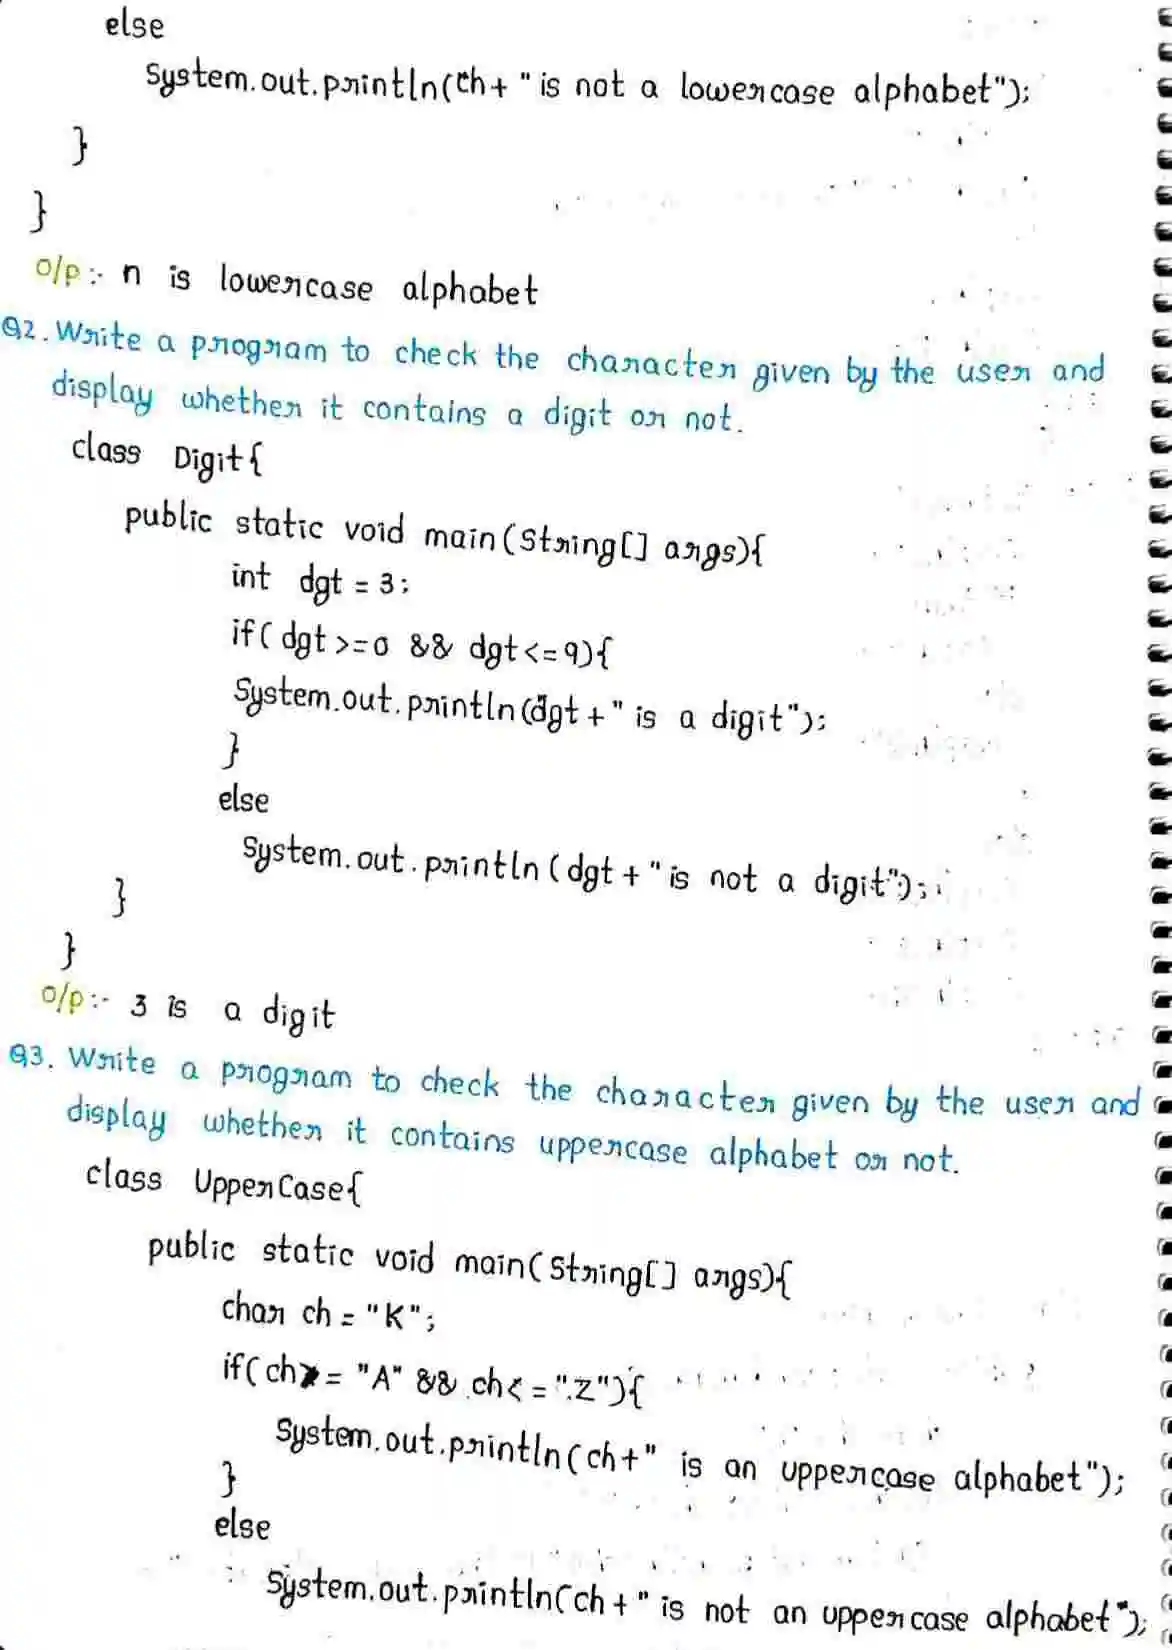 else
System.out.println(ch+ "is not a lowercase alphabet");
}
}
O/p:- n is lowercase alphabet
Q2. Write a program to check the character given by the user and
display whether it contains a digit or not.
class Digit{
public static void main(String[] args){
int dgt = 3;
if( dgt >=0 && dgt<=9){
System.out.println(dgt+" is a digit");
}
else
System.out.println (dgt + "is not a digit");
}
}
O/p:- 3 is a digit
Q3. Write a program to check the character given by the user and
display whether it contains uppercase alphabet or not.
class UpperCase{
public static void main(String[] args){
char ch = "K";
if(ch>= "A" && ch<="Z"){
System.out.println(ch+" is an uppercase alphabet");
}
else
System.out.println(ch+" is not an uppercase alphabet");